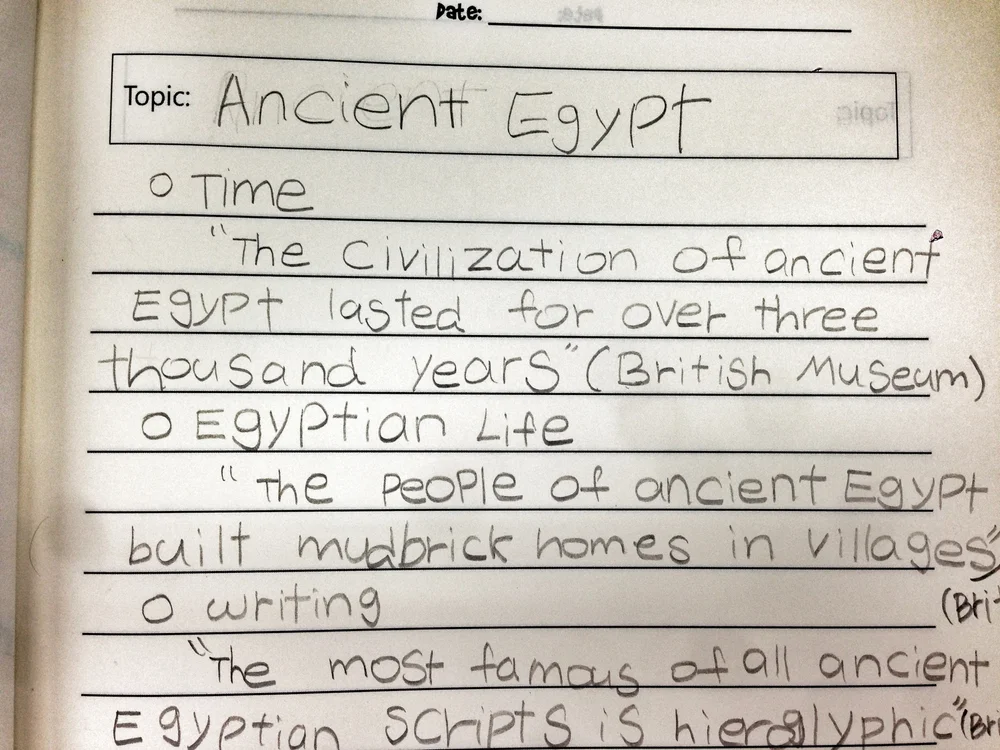 Date:
Topic: Ancient Egypt
o Time
"The Civilization of ancient
Egypt lasted for over three
thousand years" (British Museum)
o Egyptian Life
"The people of ancient Egypt
built mudbrick homes in villages"
(Brit
o writing
"The most famous of all ancient
Egyptian scripts is hieroglyphic" (Bri